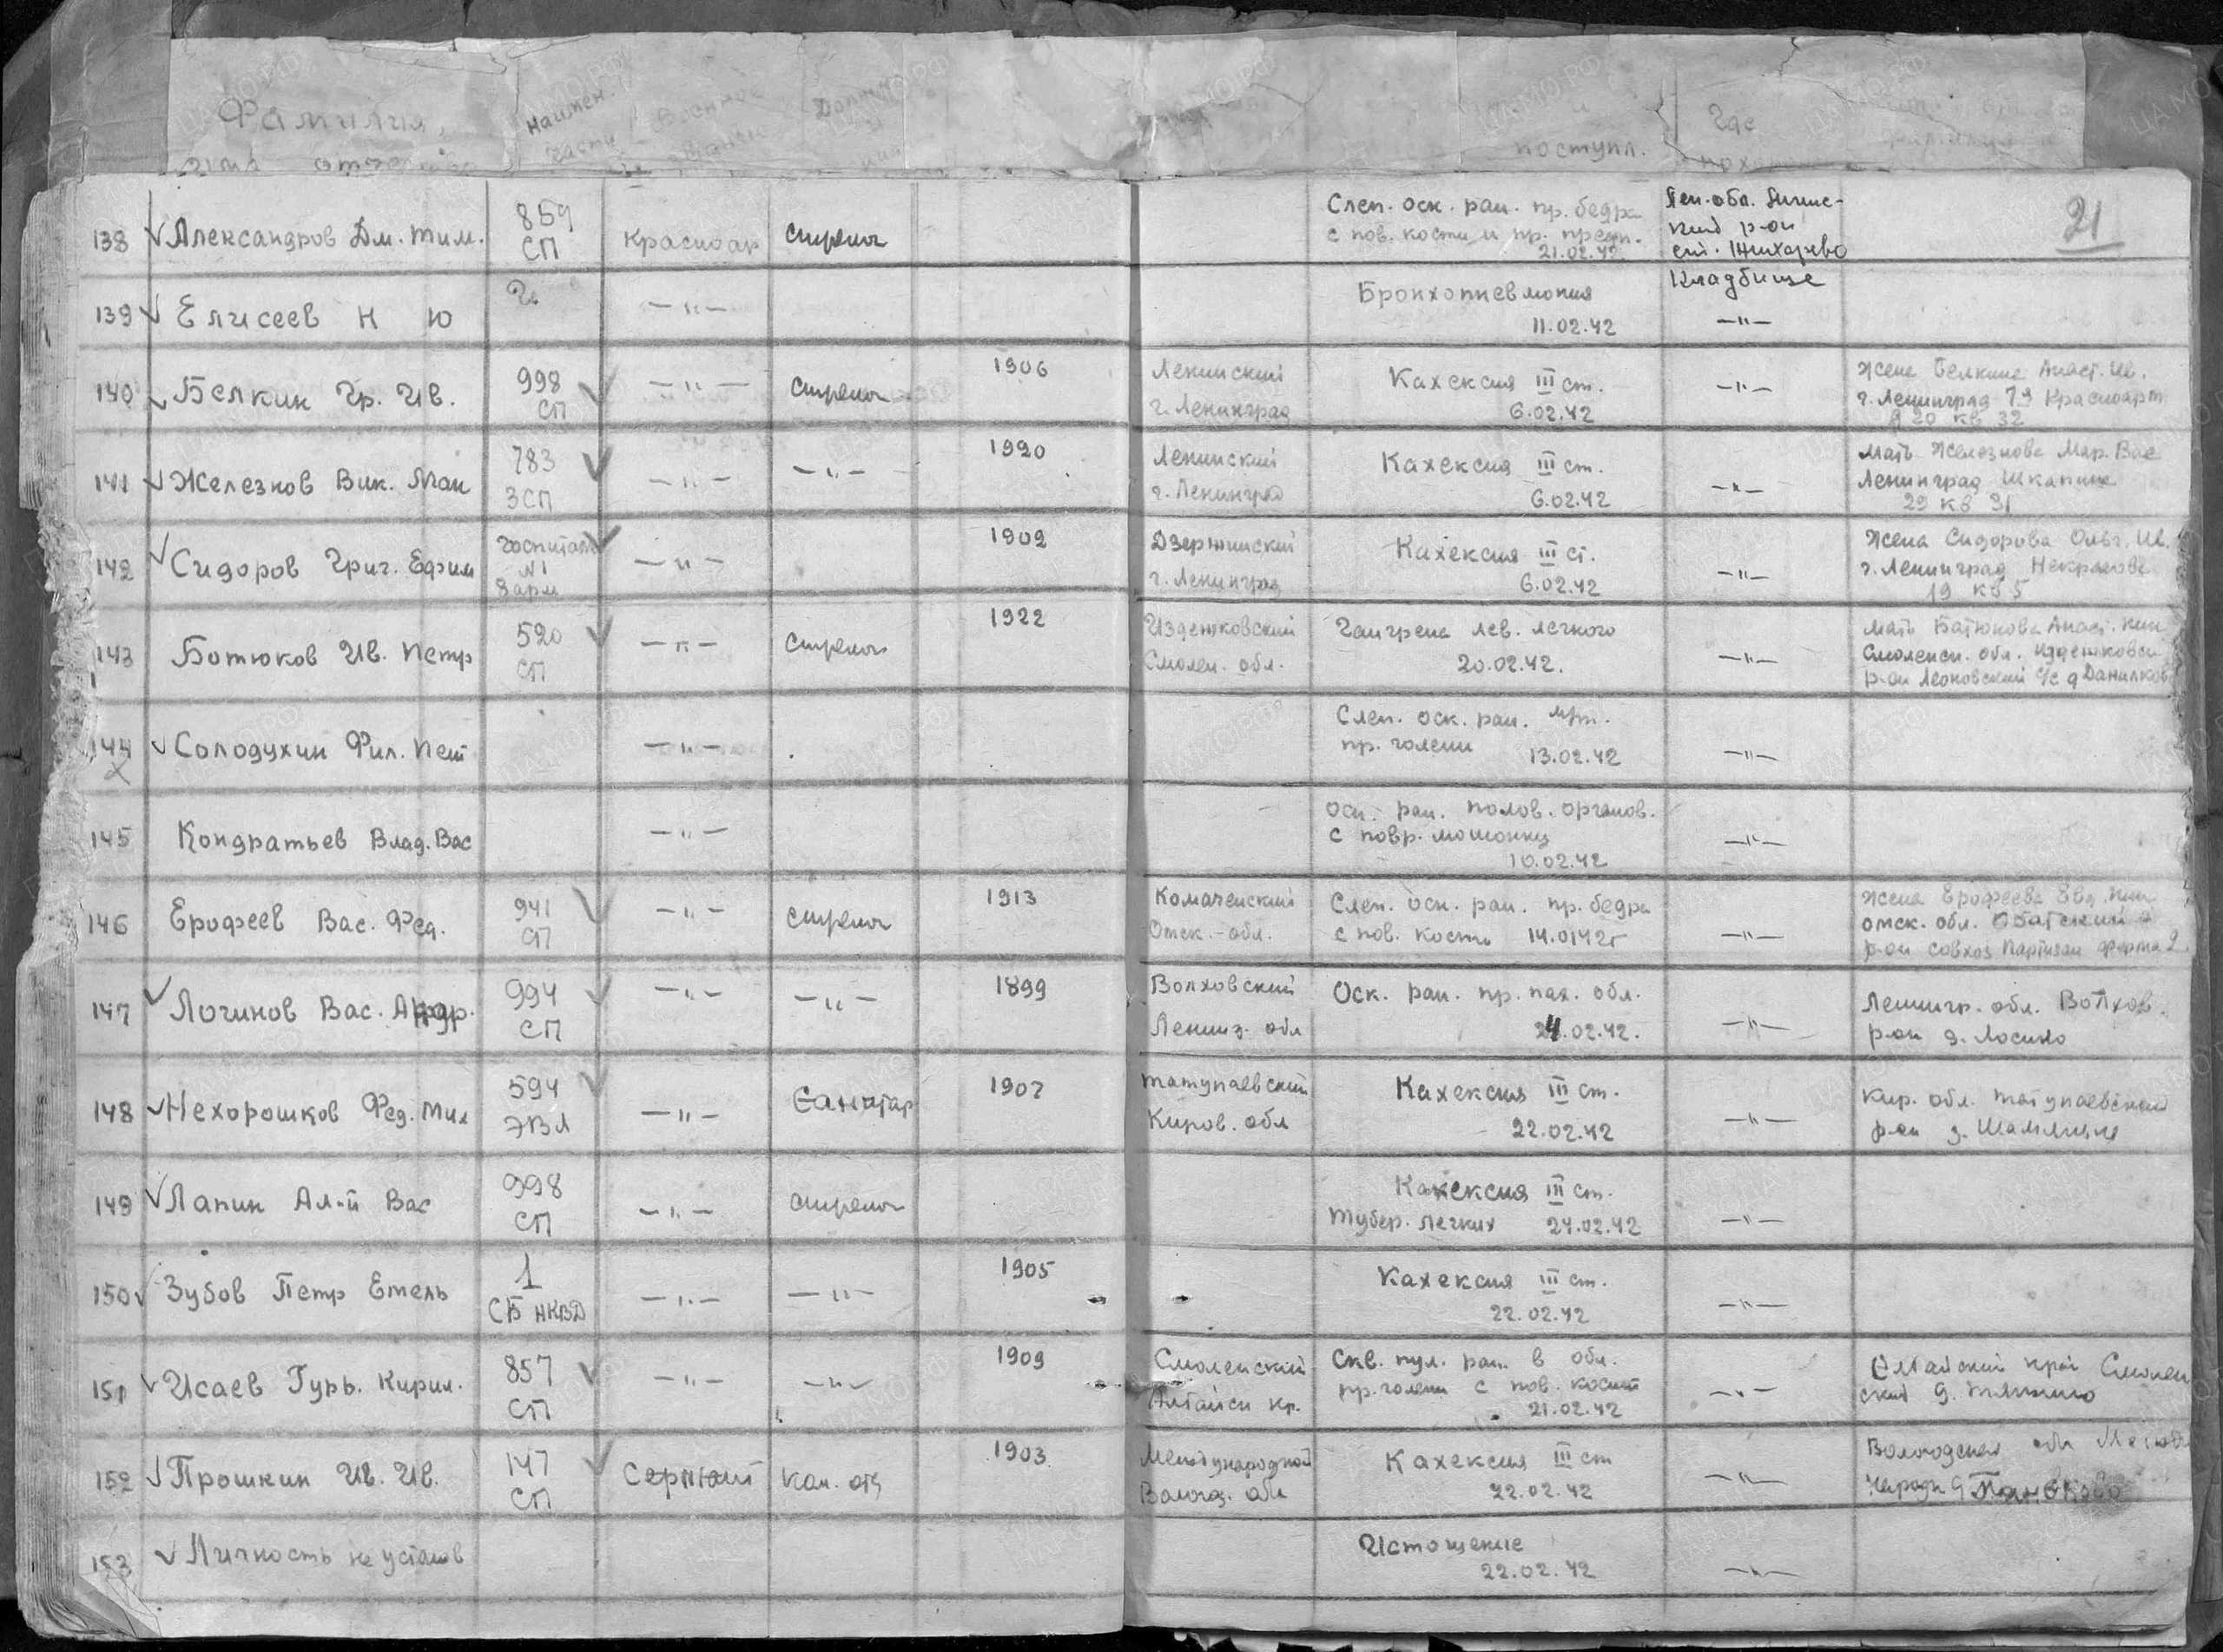 Фамилия,
имя отчество
Наимен.
части
Военное
звание
поступл.
Где
21
138 Александров Дм. Тим. 859 СП Красноар стрелок Слеп. оск. ран. пр. бедра с пов. кости и пр. предп. 21.02.42 Лен. обл. ст. Жихарево Кладбище
139 Елисеев Н Ю —"— Бронхопневмония 11.02.42 —"—
140 Белкин Гр. Ив. 998 СП —"— стрелок 1906 Ленинский г. Ленинград Кахексия III ст. 6.02.42 —"— Жена Белкина Анаст. Ив. г. Ленинград 7я Красноарм. д 20 кв 32
141 Железнов Вик. Мак 783 ЗСП —"— —"— 1920 Ленинский г. Ленинград Кахексия III ст. 6.02.42 —"— Мать Железнова Мар. Вас Ленинград Шкапина 29 кв 31
142 Сидоров Григ. Ефим Госпиталь №1 8 арм —"— 1902 Дзержинский г. Ленинград Кахексия III ст. 6.02.42 —"— Жена Сидорова Ольг. Ив. г. Ленинград Некрасова 19 кв 5
143 Ботюков Ив. Петр 520 СП —"— стрелок 1922 Издешковский Смолен. обл. Гангрена лев. легкого 20.02.42. —"— Мать Батюкова Анаст. Смоленск. обл. Издешковск р-он Леоновский с/с д Данилков
144 Солодухин Фил. Пет —"— Слеп. оск. ран. пр. голени 13.02.42 —"—
145 Кондратьев Влад. Вас —"— Оск. ран. полов. органов. с повр. мошонки 10.02.42 —"—
146 Ерофеев Вас. Фед. 941 СП —"— стрелок 1913 Омск. обл. Слеп. оск. ран. пр. бедра с пов. кости 14.01 42г —"— Жена Ерофеева Евд. омск. обл. р-он совхоз Партизан ферма 2
147 Логинов Вас. Андр. 994 СП —"— —"— 1899 Волховский Ленинг. обл Оск. ран. пр. пах. обл. 24.02.42. —"— Ленингр. обл. Волхов. р-он д. Лосино
148 Нехорошков Фед. Мил 594 ЭВЛ —"— Санитар 1907 Киров. обл Кахексия III ст. 22.02.42 —"— Кир. обл. р-он д.
149 Лапин Ал-й Вас 998 СП —"— стрелок Кахексия III ст. Тубер. легких 24.02.42 —"—
150 Зубов Петр Емель 1 СБ НКВД —"— —"— 1905 Кахексия III ст. 22.02.42 —"—
151 Исаев Гурь. Кирил. 857 СП —"— —"— 1909 Смоленский Алтайск кр. Скв. пул. ран. в обл. пр. голени с пов. кости 21.02.42 —"— Алтайский край Смолен ский д.
152 Прошкин Ив. Ив. 147 СП Сержант Ком. отд 1903 Вологд. обл Кахексия III ст 22.02.42 —"— Вологодская обл
153 Личность не установ Истощение 22.02.42 —"—